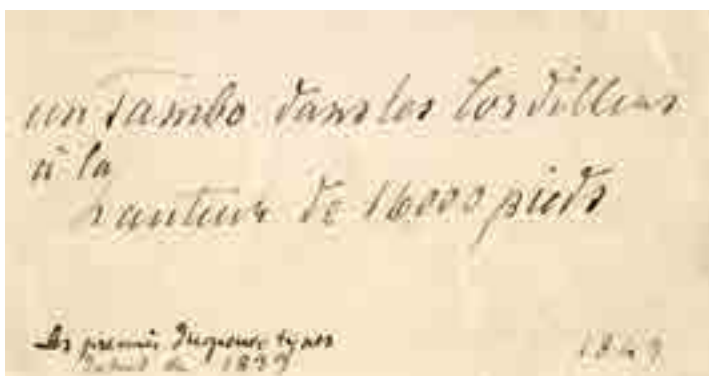 un Tambo dans les Cordillères
à la
hauteur de 16000 pieds
Les premiers Daguerreotypes
datent de 1839
1849